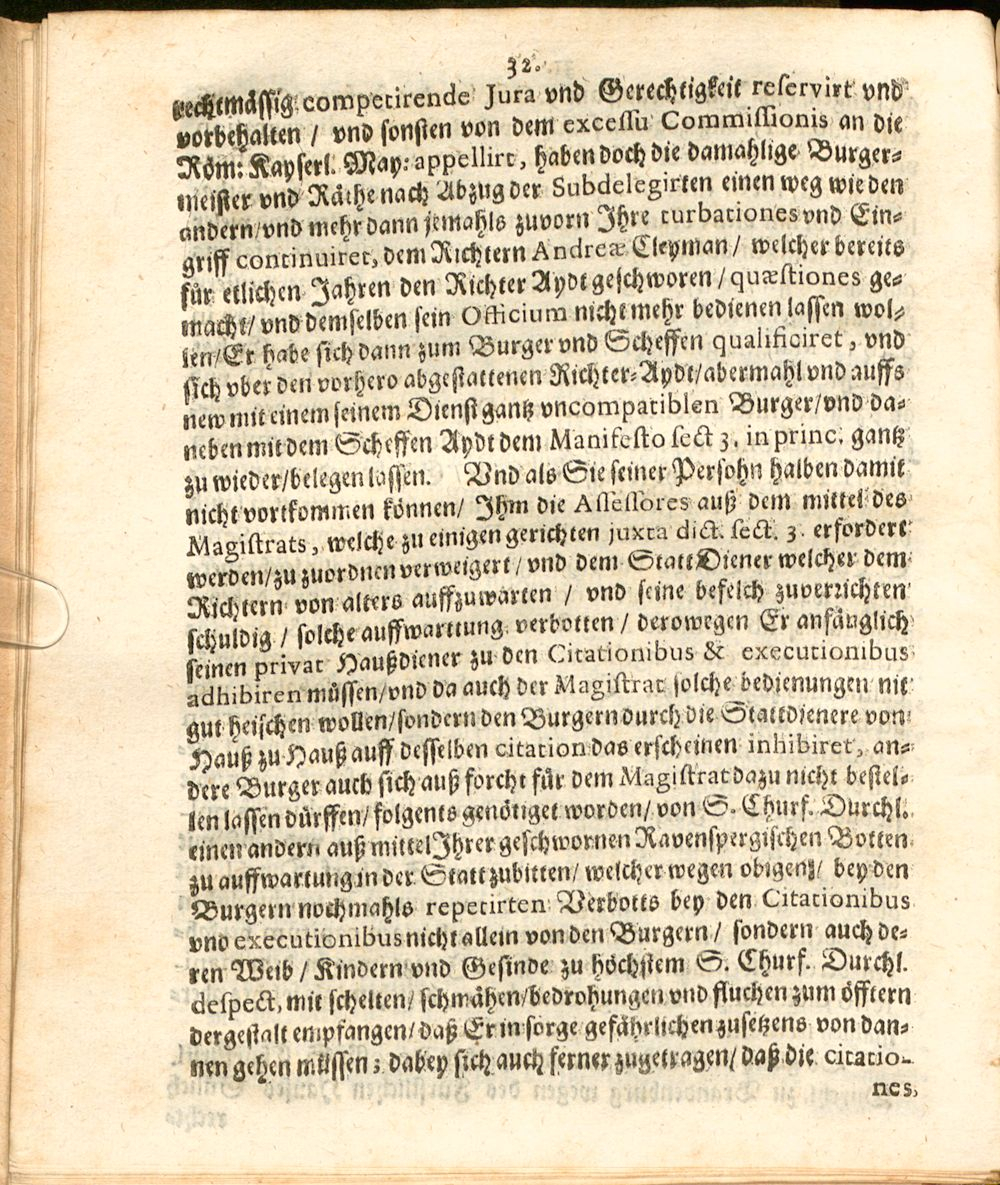 32.
rechtmässig competirende Jura vnd Gerechtigkeit reservirt vnd
vorbehalten / vnd sonsten von dem excessu Commissionis an die
Röm: Kayserl. May: appellirt, haben doch die damahlige Burger-
meister vnd Räthe nach Abzug der Subdelegirten einen weg wie den
andern/vnd mehr dann jemahls zuvorn Ihre turbationes vnd Ein-
griff continuiret, dem Richtern Andreæ Cleyman / welcher bereits
für etlichen Jahren den Richter Aydt geschworen / quæstiones ge-
macht/ vnd demselben sein Officium nicht mehr bedienen lassen wol-
len/Er habe sich dann zum Burger vnd Scheffen qualificiret, vnd
sich vber den vorhero abgestattenen Richter-Aydt/abermahl vnd auffs
new mit einem seinem Dienst gantz vncompatiblen Burger/vnd da-
neben mit dem Scheffen Aydt dem Manifesto sect 3. in princ. gantz
zu wieder/belegen lassen. Vnd als Sie seiner Persohn halben damit
nicht vortkommen können/ Ihm die Assessores auß dem mittel des
Magistrats, welche zu einigen gerichten juxta dict. sect. 3. erfordert
werden/zu zuordnen verweigert / vnd dem Statt Diener welcher dem
Richtern von alters auffzuwarten / vnd seine befelch zuverrichten
schuldig / solche auffwarttung verbotten / derowegen Er anfänglich
seinen privat Haußdiener zu den Citationibus & executionibus
adhibiren müssen/vnd da auch der Magistrat solche bedienungen nit
gut heischen wollen/sondern den Burgern durch die Stattdienere von
Hauß zu Hauß auff desselben citation das erscheinen inhibiret, an-
dere Burger auch sich auß forcht für dem Magistrat dazu nicht bestel-
len lassen dürffen/ folgents genötiget worden/ von S. Churf. Durchl.
einen andern auß mittel Ihrer geschwornen Ravenspergischen Botten
zu auffwartung in der Statt zubitten/ welcher wegen obigen / bey den
Burgern nochmahls repetirten Verbotts bey den Citationibus
vnd executionibus nicht allein von den Burgern / sondern auch de-
ren Weib / Kindern vnd Gesinde zu höchstem S. Churf. Durchl.
despect, mit schelten/ schmähen/bedrohungen vnd fluchen zum öfftern
dergestalt empfangen/ daß Er in sorge gefährlichen zusetzens von dan-
nen gehen müssen; dabey sich auch ferner zugetragen/ daß die citatio-
nes,